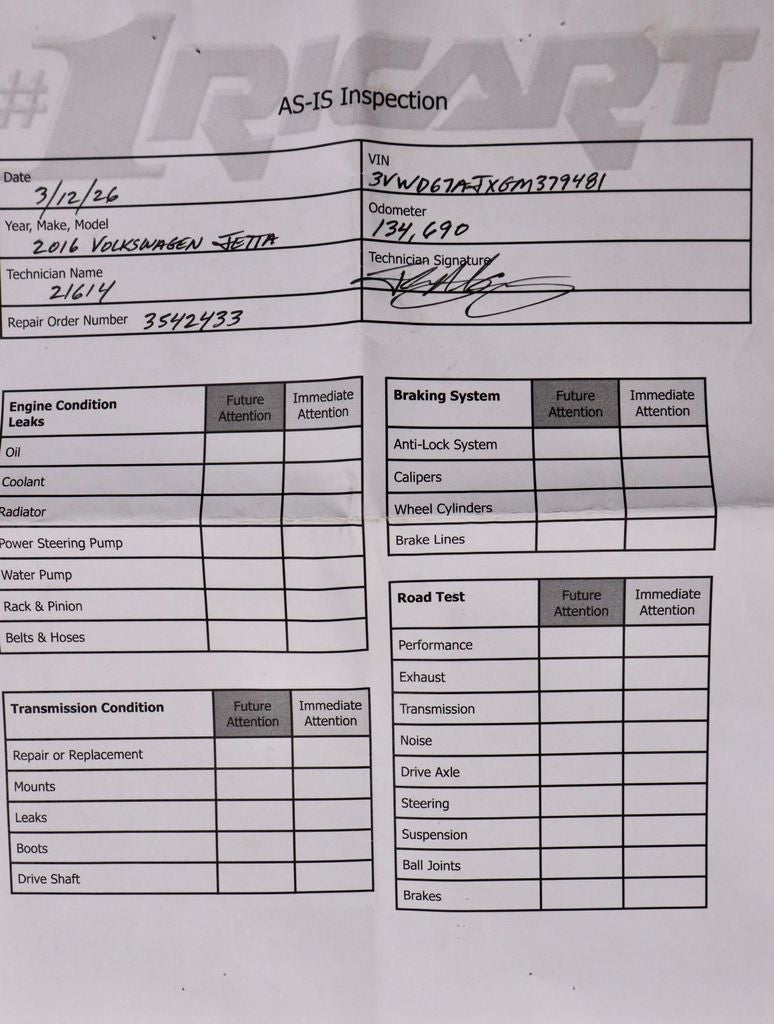 #1 RICART
AS-IS Inspection
Date 3/12/26
VIN 3VWD67AJXGM379481
Year, Make, Model 2016 VOLKSWAGEN JETTA
Odometer 134,690
Technician Name 21614
Technician Signature
Repair Order Number 3542433
Engine Condition Leaks
Future Attention
Immediate Attention
Oil
Coolant
Radiator
Power Steering Pump
Water Pump
Rack & Pinion
Belts & Hoses
Transmission Condition
Future Attention
Immediate Attention
Repair or Replacement
Mounts
Leaks
Boots
Drive Shaft
Braking System
Future Attention
Immediate Attention
Anti-Lock System
Calipers
Wheel Cylinders
Brake Lines
Road Test
Future Attention
Immediate Attention
Performance
Exhaust
Transmission
Noise
Drive Axle
Steering
Suspension
Ball Joints
Brakes